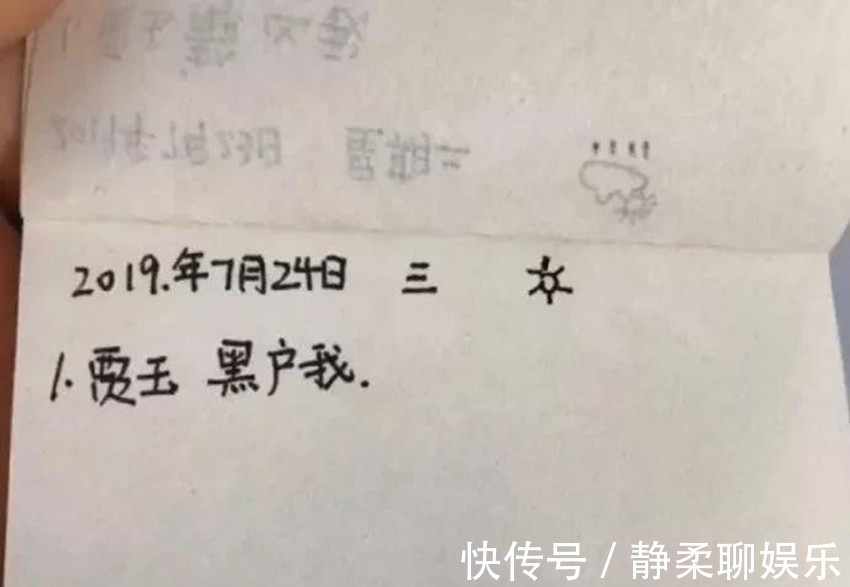 2019.年7月24日 三
1.贾玉 黑户我.
快传号/静柔聊娱乐